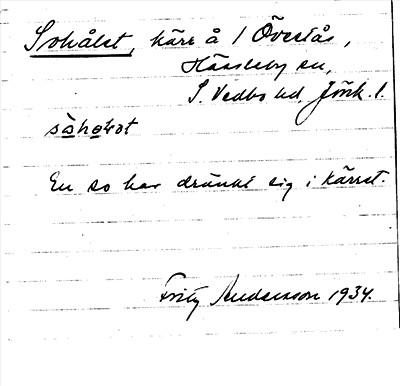 Sohålet, kärr å 1 Överås,
Hässleby sn,
S. Vedbo hd, Jönk. l.
En so har dränkt sig i kärret.
Fritz Andersson 1934.